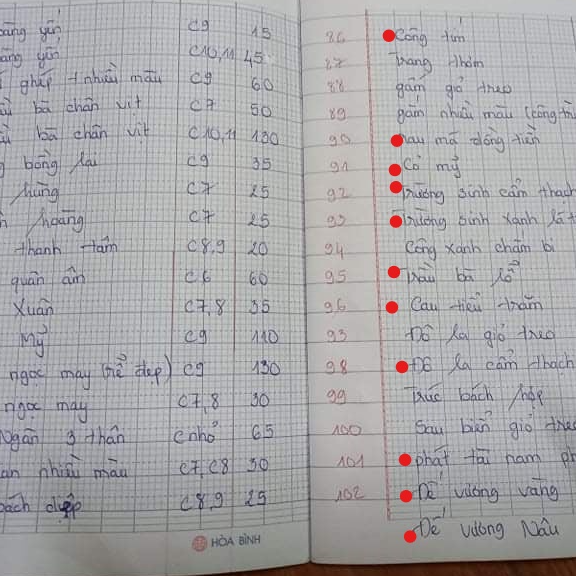 bàng yến C9 15
bàng yến C10,11 45
ghép nhiều màu C9 60
bà chân vịt C7 50
bà chân vịt C10,11 130
bồng lai C9 35
hùng C7 25
hoàng C7 25
thanh tâm C8,9 20
quân âm C6 60
Xuân C7,8 35
Mỹ C9 110
ngọc may (rể đẹp) C9 130
ngọc may C7,8 30
Ngân 3 thân C nhỏ 65
nhiều màu C7,C8 30
bách diệp C8,9 25
HÒA BÌNH
86 Công tím
87 Trang thơm
88 gấm giỏ treo
89 gấm nhiều màu (công
90 may mã đồng tiền
91 Cỏ mỹ
92 Trường sinh cẩm thạch
93 Trường sinh xanh lá
94 Công xanh chấm bi
95 Trầu bà lổ
96 Cau tiểu trâm
93 Đô la giỏ treo
98 Đô la cẩm thạch
99 Trúc bách hợp
100 Sao biển giỏ treo
101 phát tài nam
102 Đế vương vàng
Đế vương Nâu